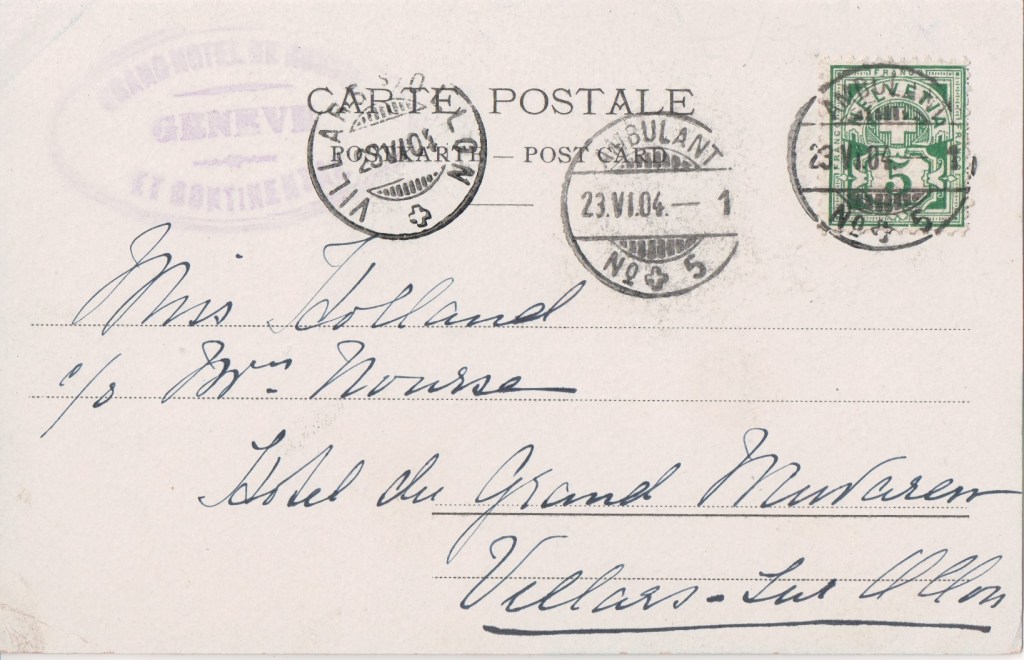 GRAND HOTEL DE
GENEVE
ET CONTINENTAL
CARTE POSTALE
POSTKARTE — POST CARD
VILLARS S/OLLON
23.VI.04
AMBULANT
23.VI.04.— 1
No 5
FRANCO
HELVETIA
5
AMBULANT
23.VI.04.— 1
No 5
Miss Holland
c/o Mrs. Nourse
Hotel du Grand Muvaren
Villars-sur Ollon